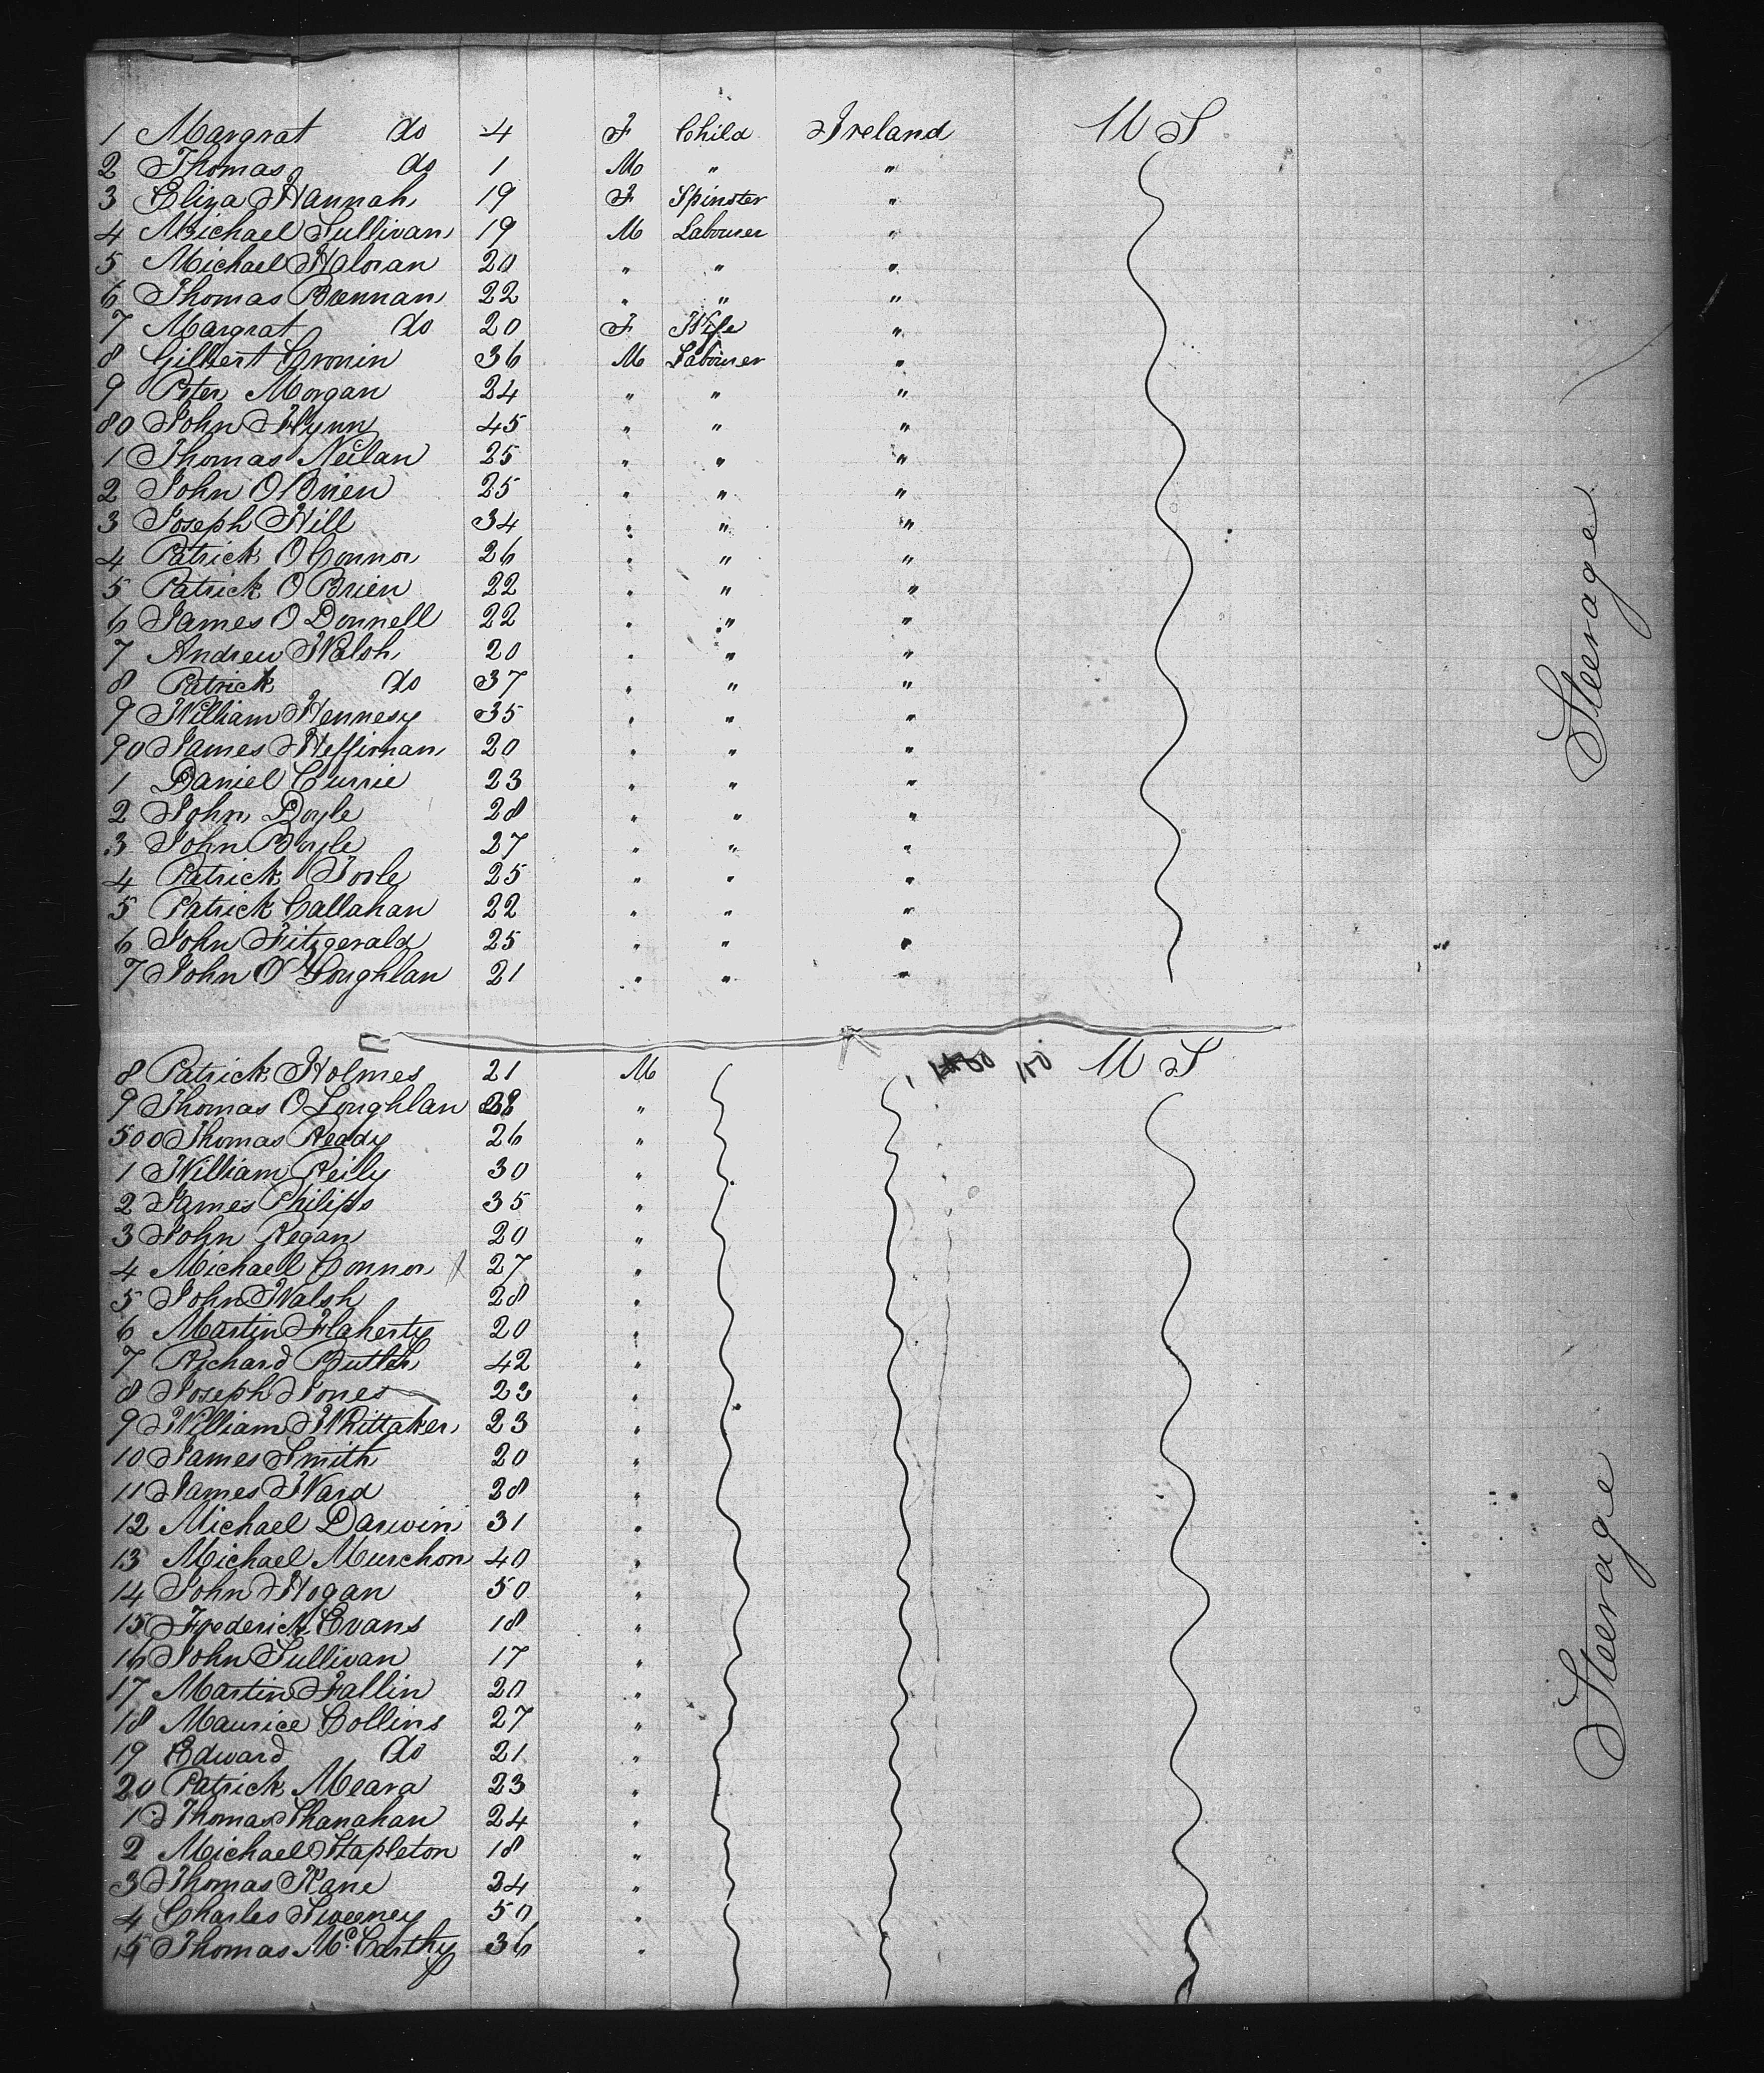 1 Margrat do 4 F Child Ireland U S
2 Thomas do 1 M " "
3 Eliza Hannah 19 F Spinster "
4 Michael Sullivan 19 M Labourer "
5 Michael Haloran 20 " " "
6 Thomas Brennan 22 " " "
7 Margrat do 20 F Wife "
8 Gilbert Cronin 36 M Labourer "
9 Peter Morgan 24 " " "
80 John Flynn 45 " " "
1 Thomas Neilan 25 " " "
2 John O Brien 25 " " "
3 Joseph Hill 34 " " "
4 Patrick O Connor 26 " " "
5 Patrick O Brien 22 " " "
6 James O Donnell 22 " " "
7 Andrew Walsh 20 " " "
8 Patrick do 37 " " "
9 William Hennesy 35 " " "
90 James Heffirnan 20 " " "
1 Daniel Currie 23 " " "
2 John Doyle 28 " " "
3 John Boyle 27 " " "
4 Patrick Toole 25 " " "
5 Patrick Callahan 22 " " "
6 John Fitzgerald 25 " " "
7 John O'Loughlan 21 " " "
Steerage
8 Patrick Holmes 21 M 150 U S
9 Thomas O Loughlan 28 "
500 Thomas Reddy 26 "
1 William Reily 30 "
2 James Philips 35 "
3 John Regan 20 "
4 Michael Connor 27 "
5 John Walsh 28 "
6 Martin Flaherty 20 "
7 Richard Butler 42 "
8 Joseph Jones 23 "
9 William Whittaker 23 "
10 James Smith 20 "
11 James Ward 28 "
12 Michael Darwin 31 "
13 Michael Murchon 40 "
14 John Hogan 50 "
15 Frederick Evans 18 "
16 John Sullivan 17 "
17 Martin Fallin 20 "
18 Maurice Collins 27 "
19 Edward do 21 "
20 Patrick Meara 23 "
1 Thomas Shanahan 24 "
2 Michael Stapleton 18 "
3 Thomas Kane 24 "
4 Charles Sweeney 50 "
5 Thomas McCarthy 36 "
Steerage